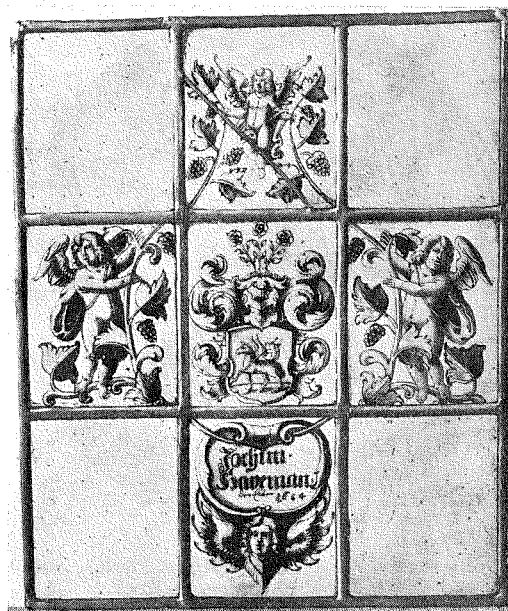 Jochim
Haveman
1664